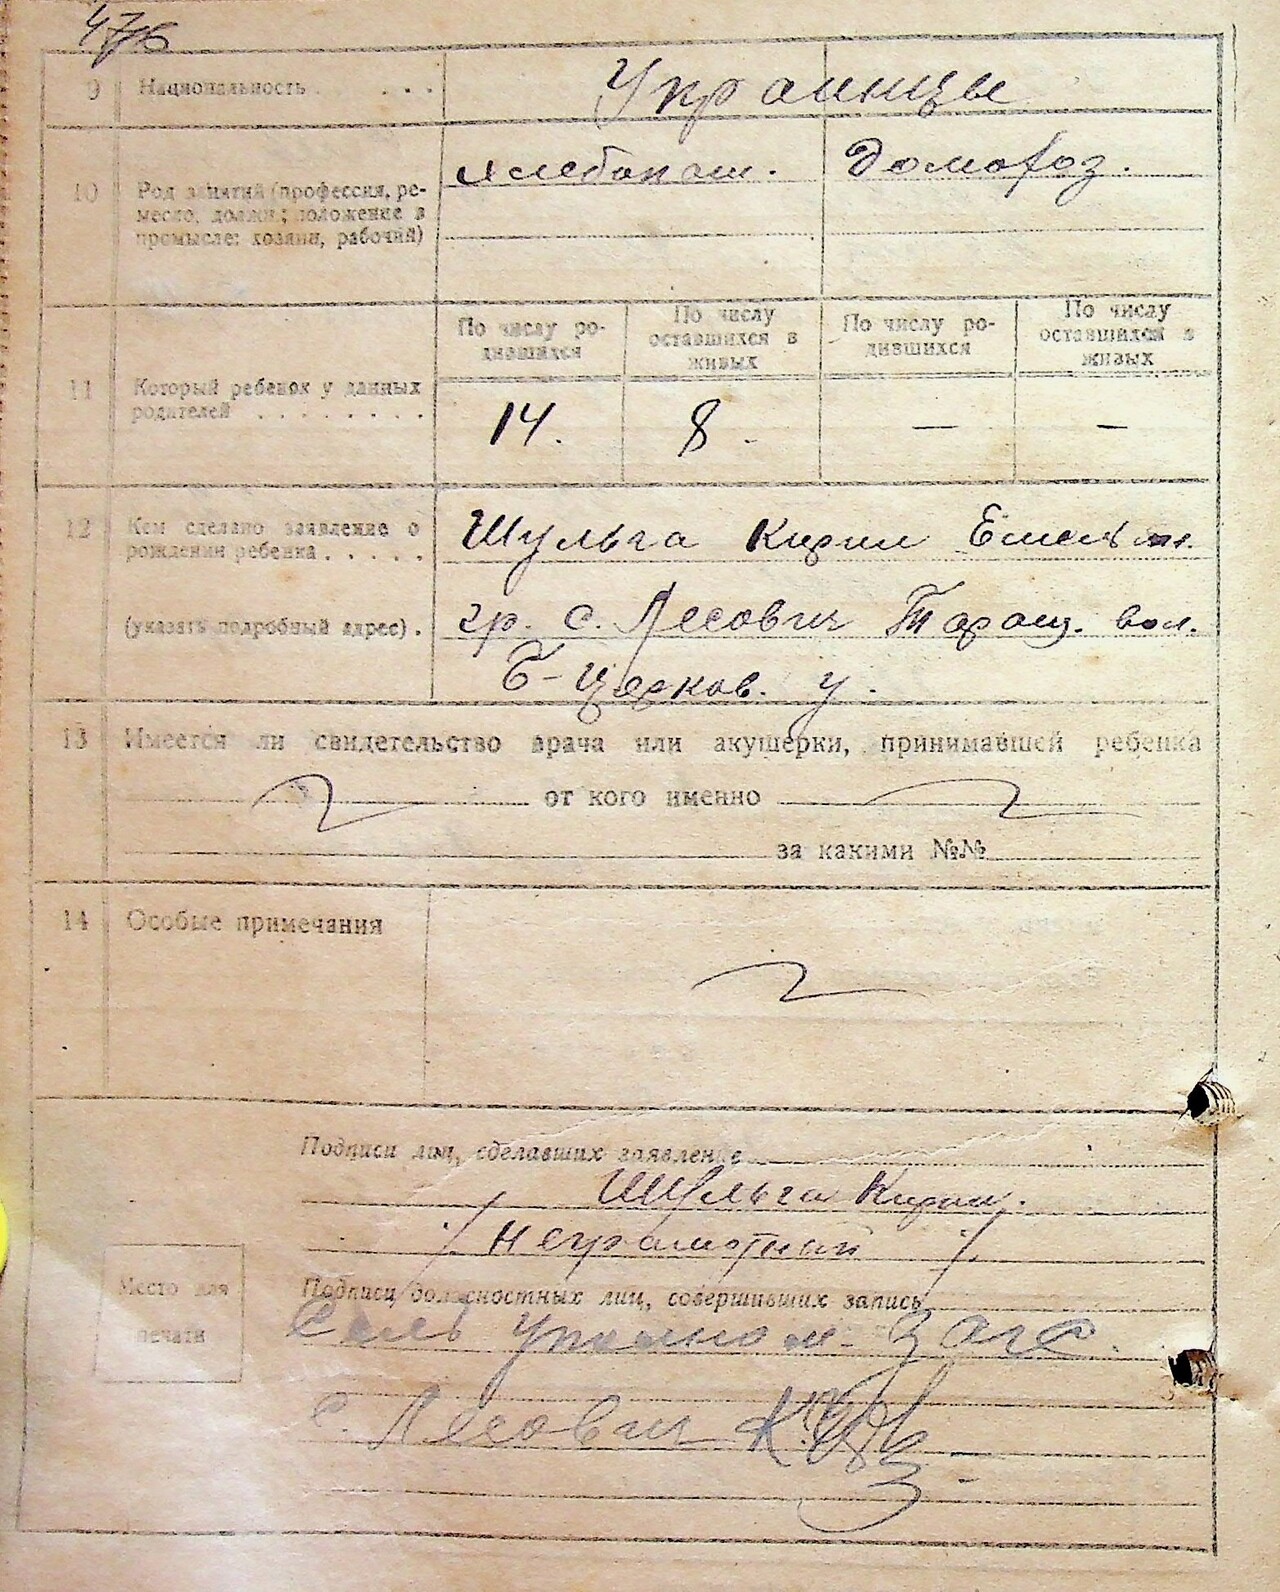 47б
9 Национальность . . . . Украинцы
10 Род занятий (профессия, ре-
месло, должн.; положение в
промысле: хозяин, рабочий)
Хлебопаш. Домохоз.
11 Который ребенок у данных
родителей . . . . . . . .
По числу ро-
дившихся
По числу
оставшихся в
живых
По числу ро-
дившихся
По числу
оставшихся в
живых
14. 8. — —
12 Кем сделано заявление о
рождении ребенка . . . . .
(указать подробный адрес) .
Шульга Кирил Емельян.
гр. с. Лесович Таращ. вол.
Б-Церков. у.
13 Имеется ли свидетельство врача или акушерки, принимавшей ребенка
от кого именно
за какими №№
14 Особые примечания
Подписи лиц, сделавших заявление
Шульга Кирил.
/ Неграмотный /.
Место для
печати
Подписи должностных лиц, совершивших запись
Сель уполном. Загс.
с. Лесович